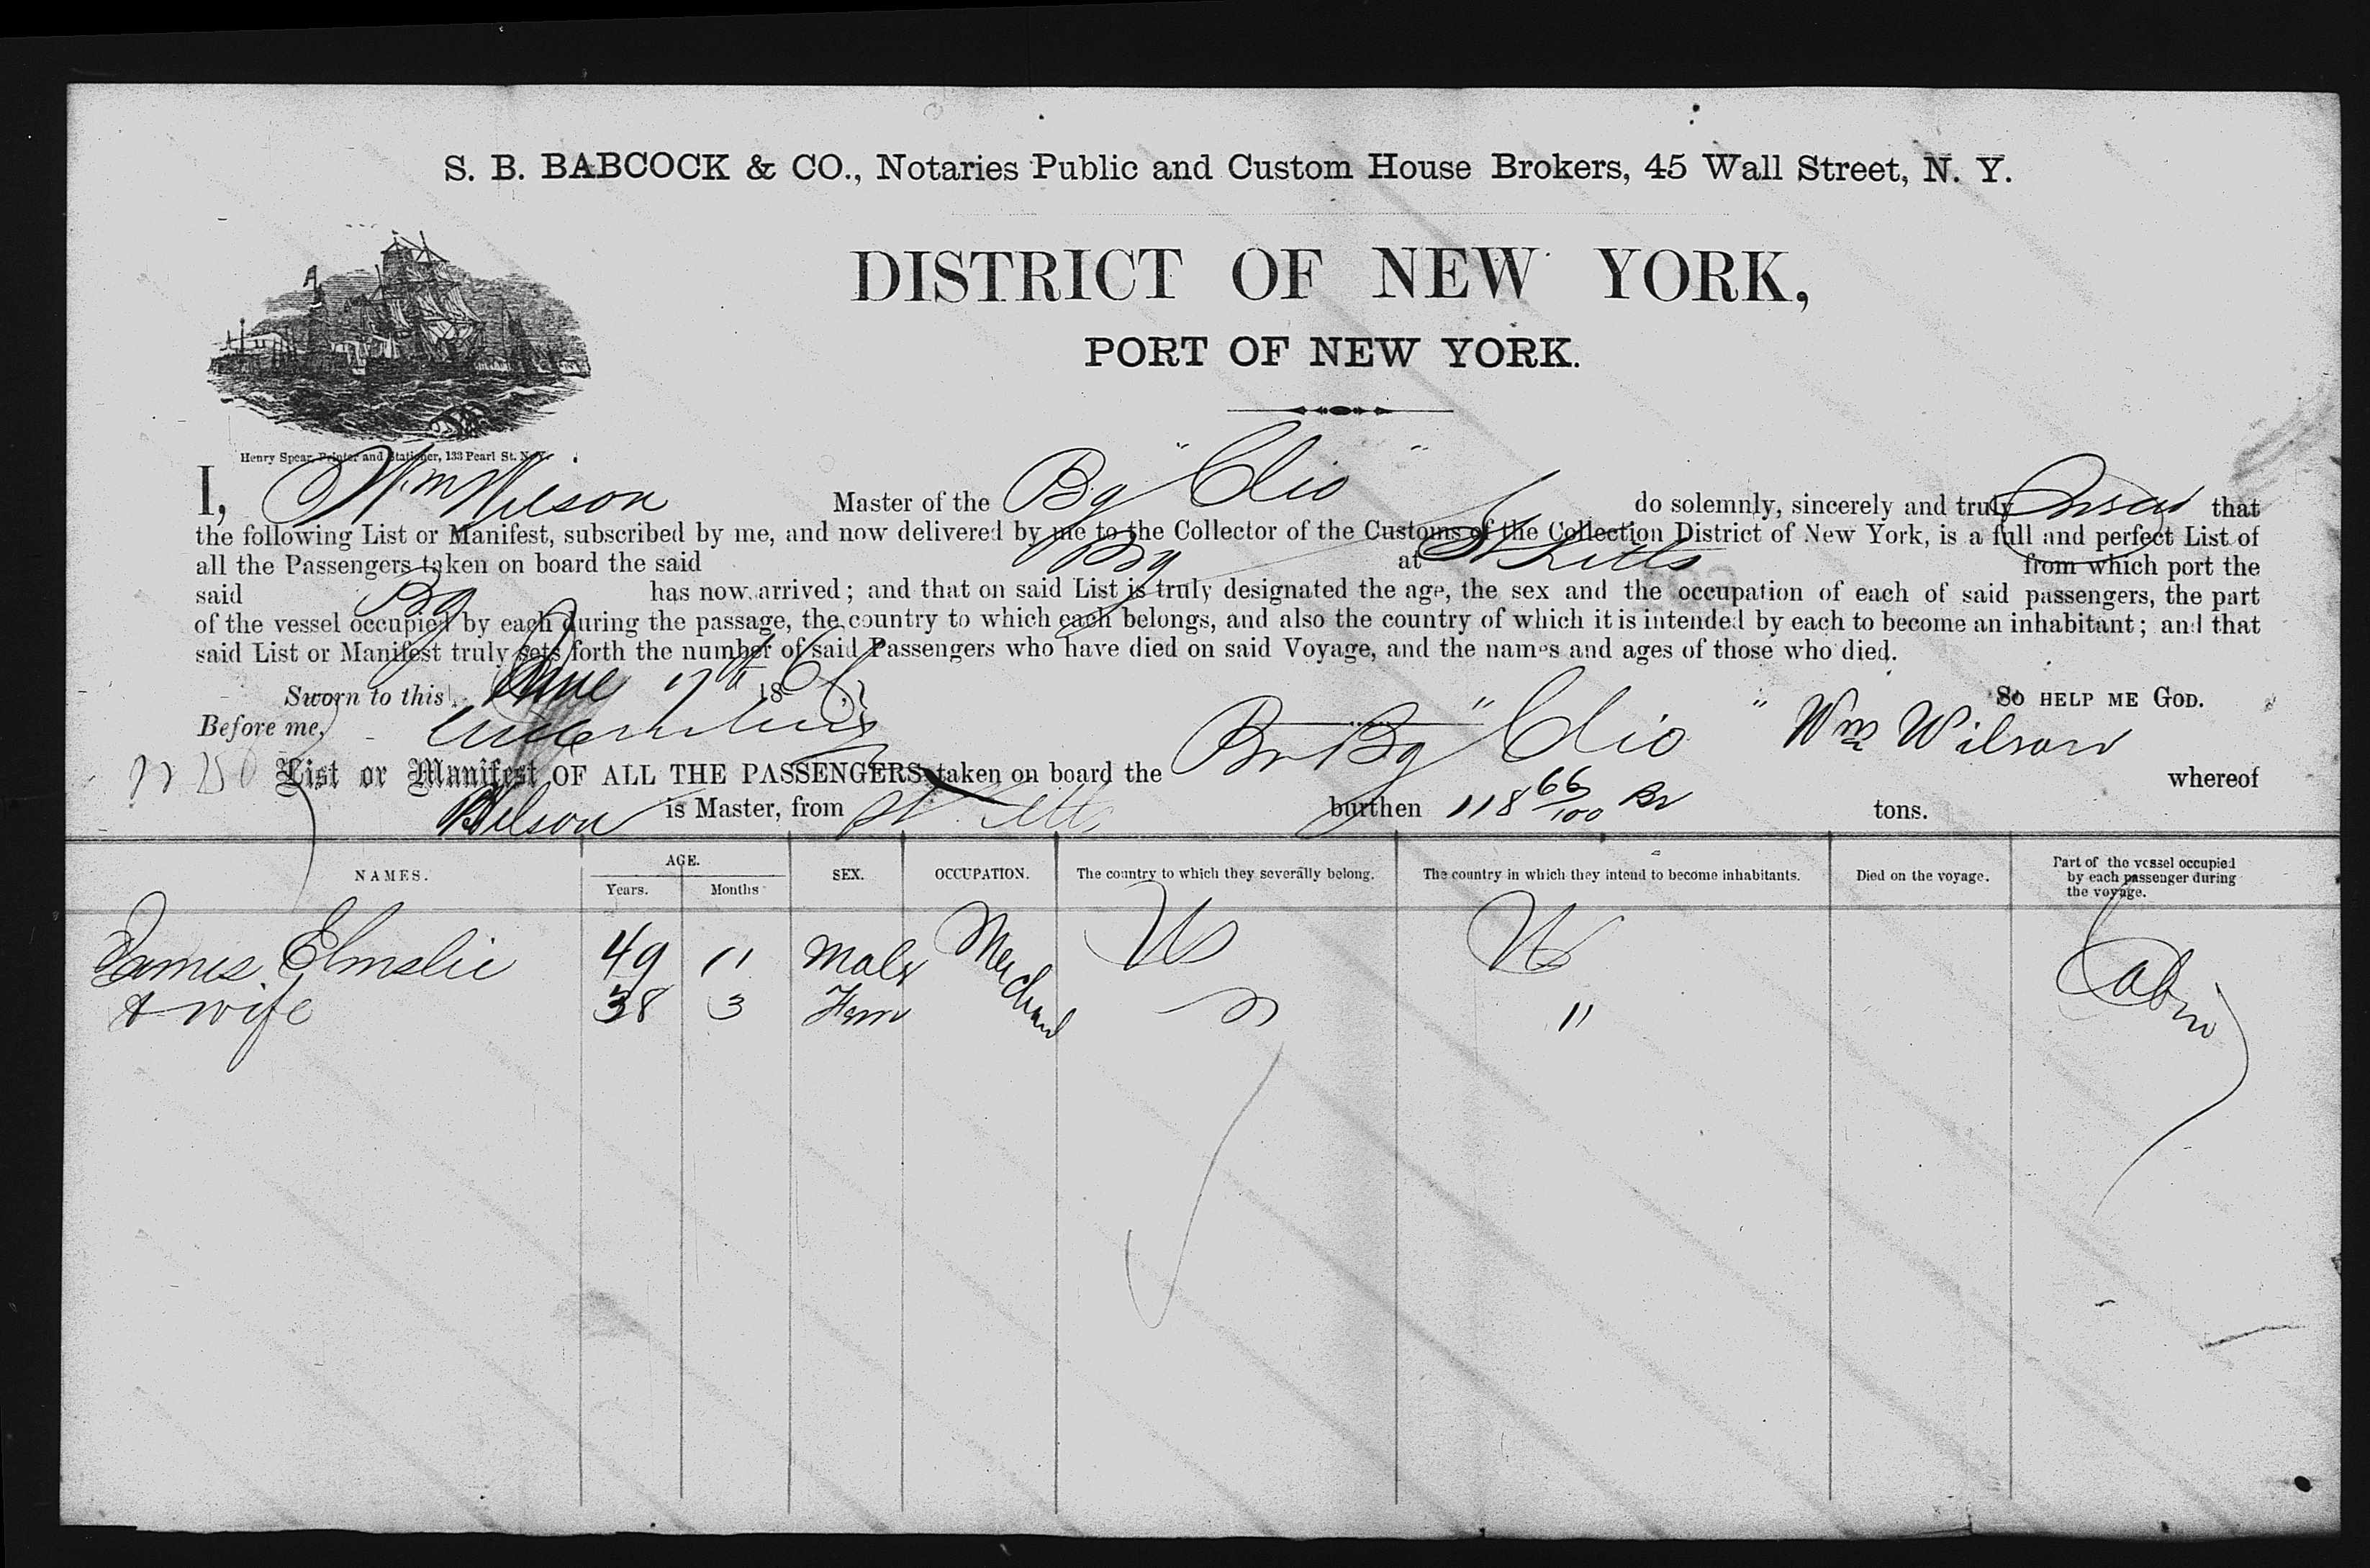 S. B. BABCOCK & CO., Notaries Public and Custom House Brokers, 45 Wall Street, N. Y.
DISTRICT OF NEW YORK,
PORT OF NEW YORK.
Henry Spear, Printer and Stationer, 133 Pearl St. N. Y.
I, Wm Wilson Master of the Bg "Clio" do solemnly, sincerely and truly swear that
the following List or Manifest, subscribed by me, and now delivered by me to the Collector of the Customs of the Collection District of New York, is a full and perfect List of
all the Passengers taken on board the said Bg at St Kitts from which port the
said Bg has now arrived; and that on said List is truly designated the age, the sex and the occupation of each of said passengers, the part
of the vessel occupied by each during the passage, the country to which each belongs, and also the country of which it is intended by each to become an inhabitant; and that
said List or Manifest truly sets forth the number of said Passengers who have died on said Voyage, and the names and ages of those who died.
Sworn to this June 17th 186 SO HELP ME GOD.
Before me, Wm Wilson
List or Manifest OF ALL THE PASSENGERS taken on board the Br Bg "Clio" whereof
Wilson is Master, from St Kitts burthen 118 66/100 Br tons.
NAMES. AGE. Years. Months SEX. OCCUPATION. The country to which they severally belong. The country in which they intend to become inhabitants. Died on the voyage. Part of the vessel occupied by each passenger during the voyage.
James Elmslie 49 11 Male Merchant US US Cabin
& wife 38 3 Fem "